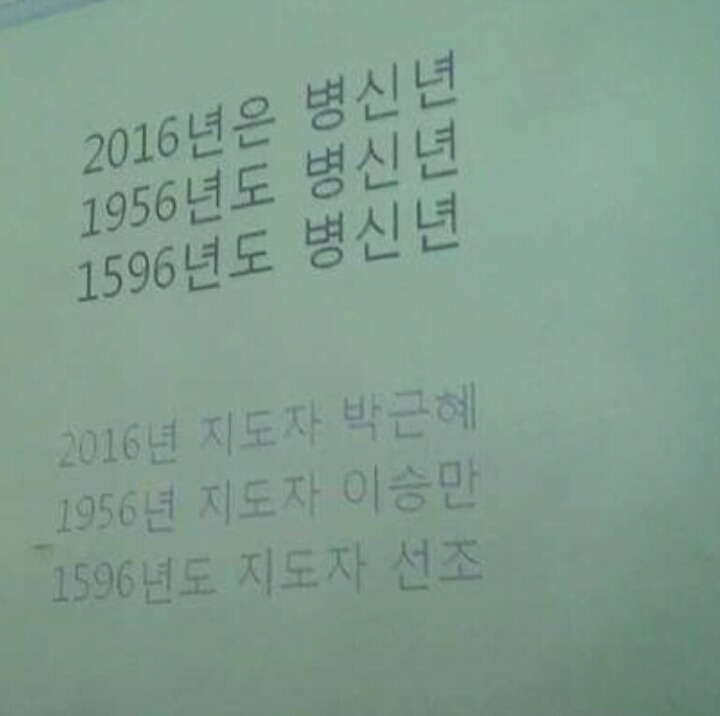 2016년은 병신년
1956년도 병신년
1596년도 병신년
2016년 지도자 박근혜
1956년 지도자 이승만
1596년도 지도자 선조